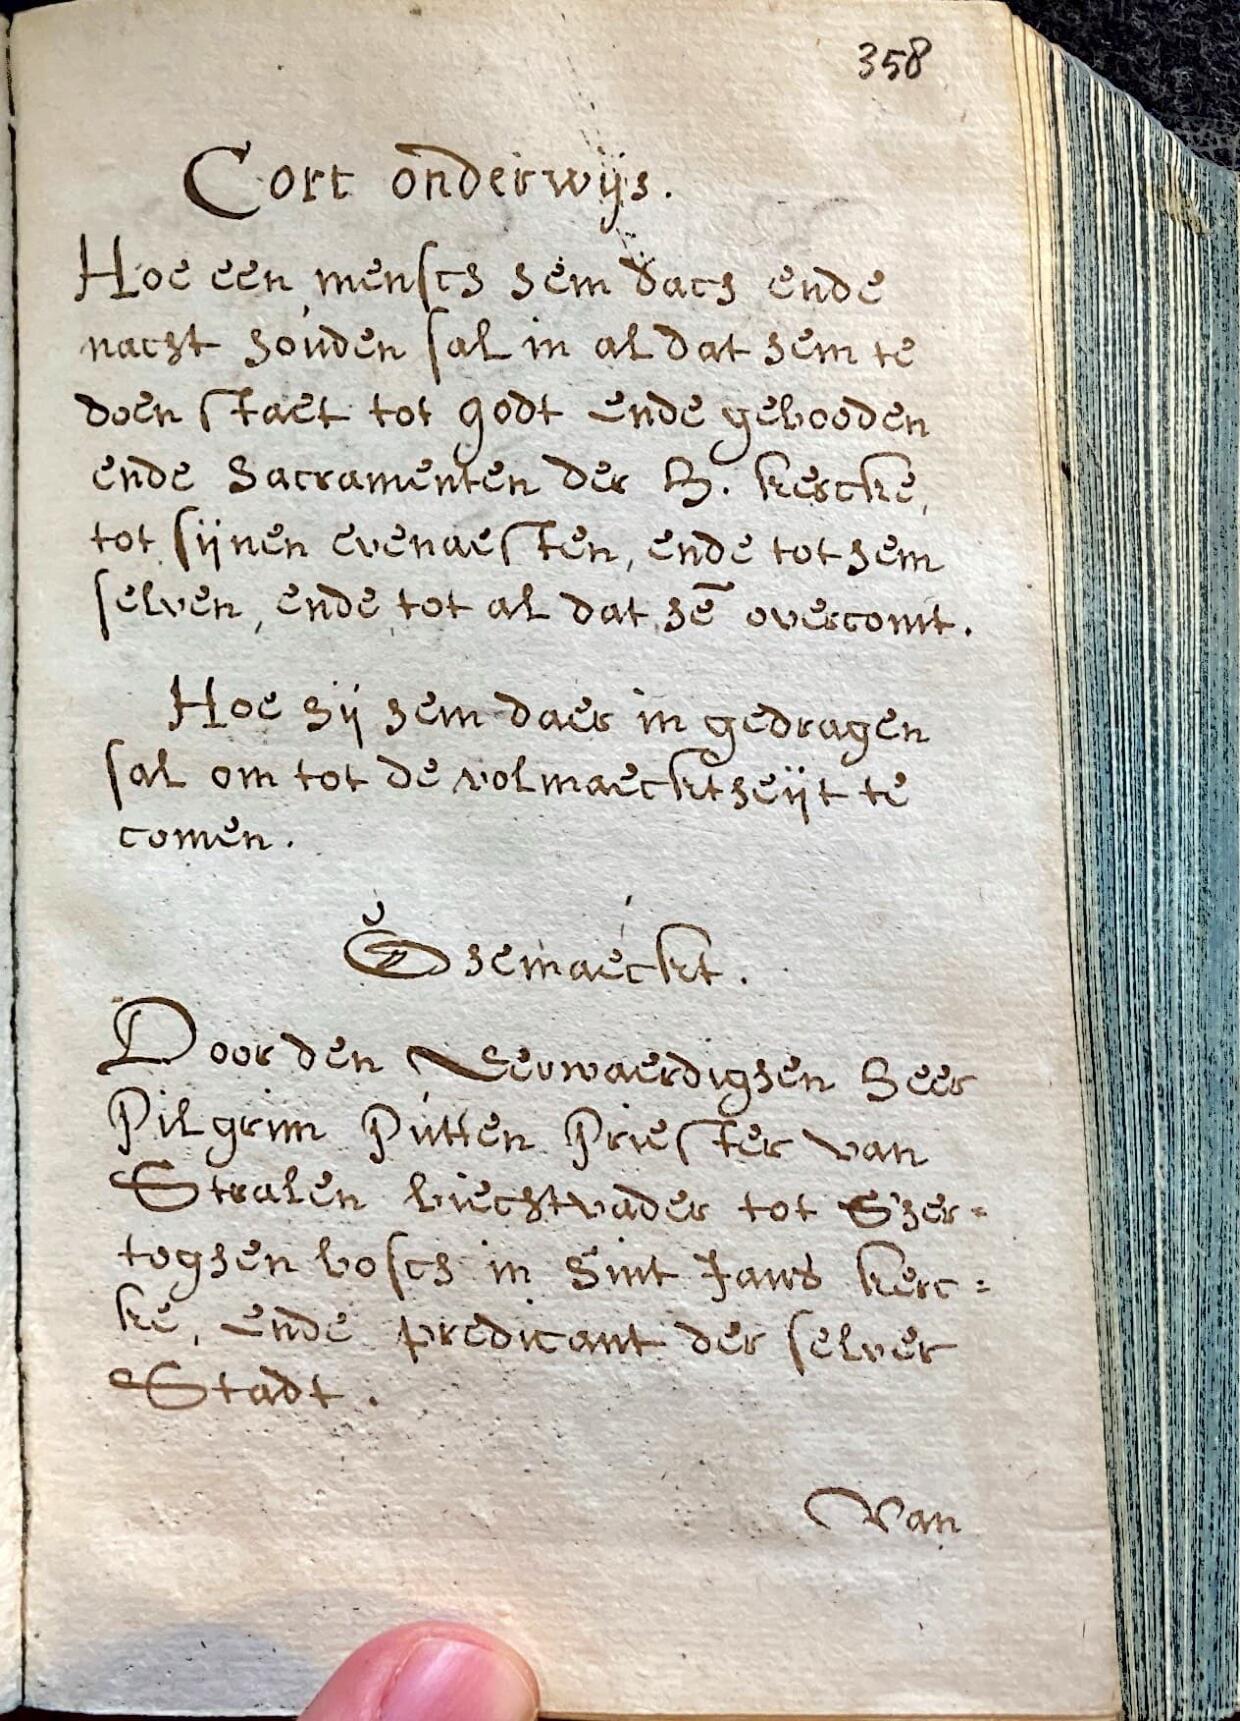 358
Cort onderwijs.
Hoe een mensch hem dach ende
nacht houden sal in al dat hem te
doen staet tot godt ende gebooden
ende Sacramenten der H. kercke,
tot sijnen evenaesten, ende tot hem
selven, ende tot al dat hē overcomt.
Hoe hij hem daer in gedragen
sal om tot de volmaecktheijt te
comen.
Ghemaeckt.
Door den Eerwaerdighen Heer
Pilgrim Pútten Priester van
Stralen biechtvader tot S'her=
toghen bosch in Sint Jans kerc=
ke, ende predicant der selver
Stadt.
Van